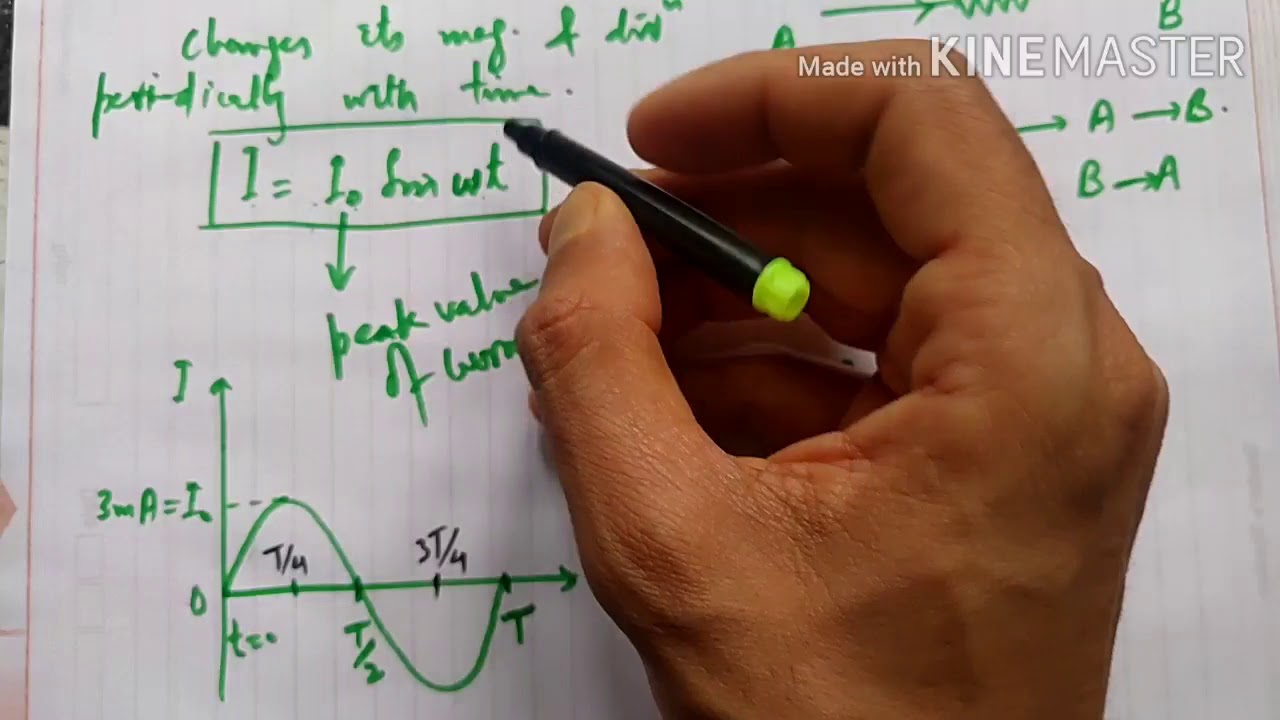 changes its mag. & dirⁿ
periodically with time.
I = I₀ Sin ωt
peak value
of
I
3mA = I₀
T/4
3T/4
0
t=0
T/2
T
A
B
A → B.
B → A
Made with KINEMASTER